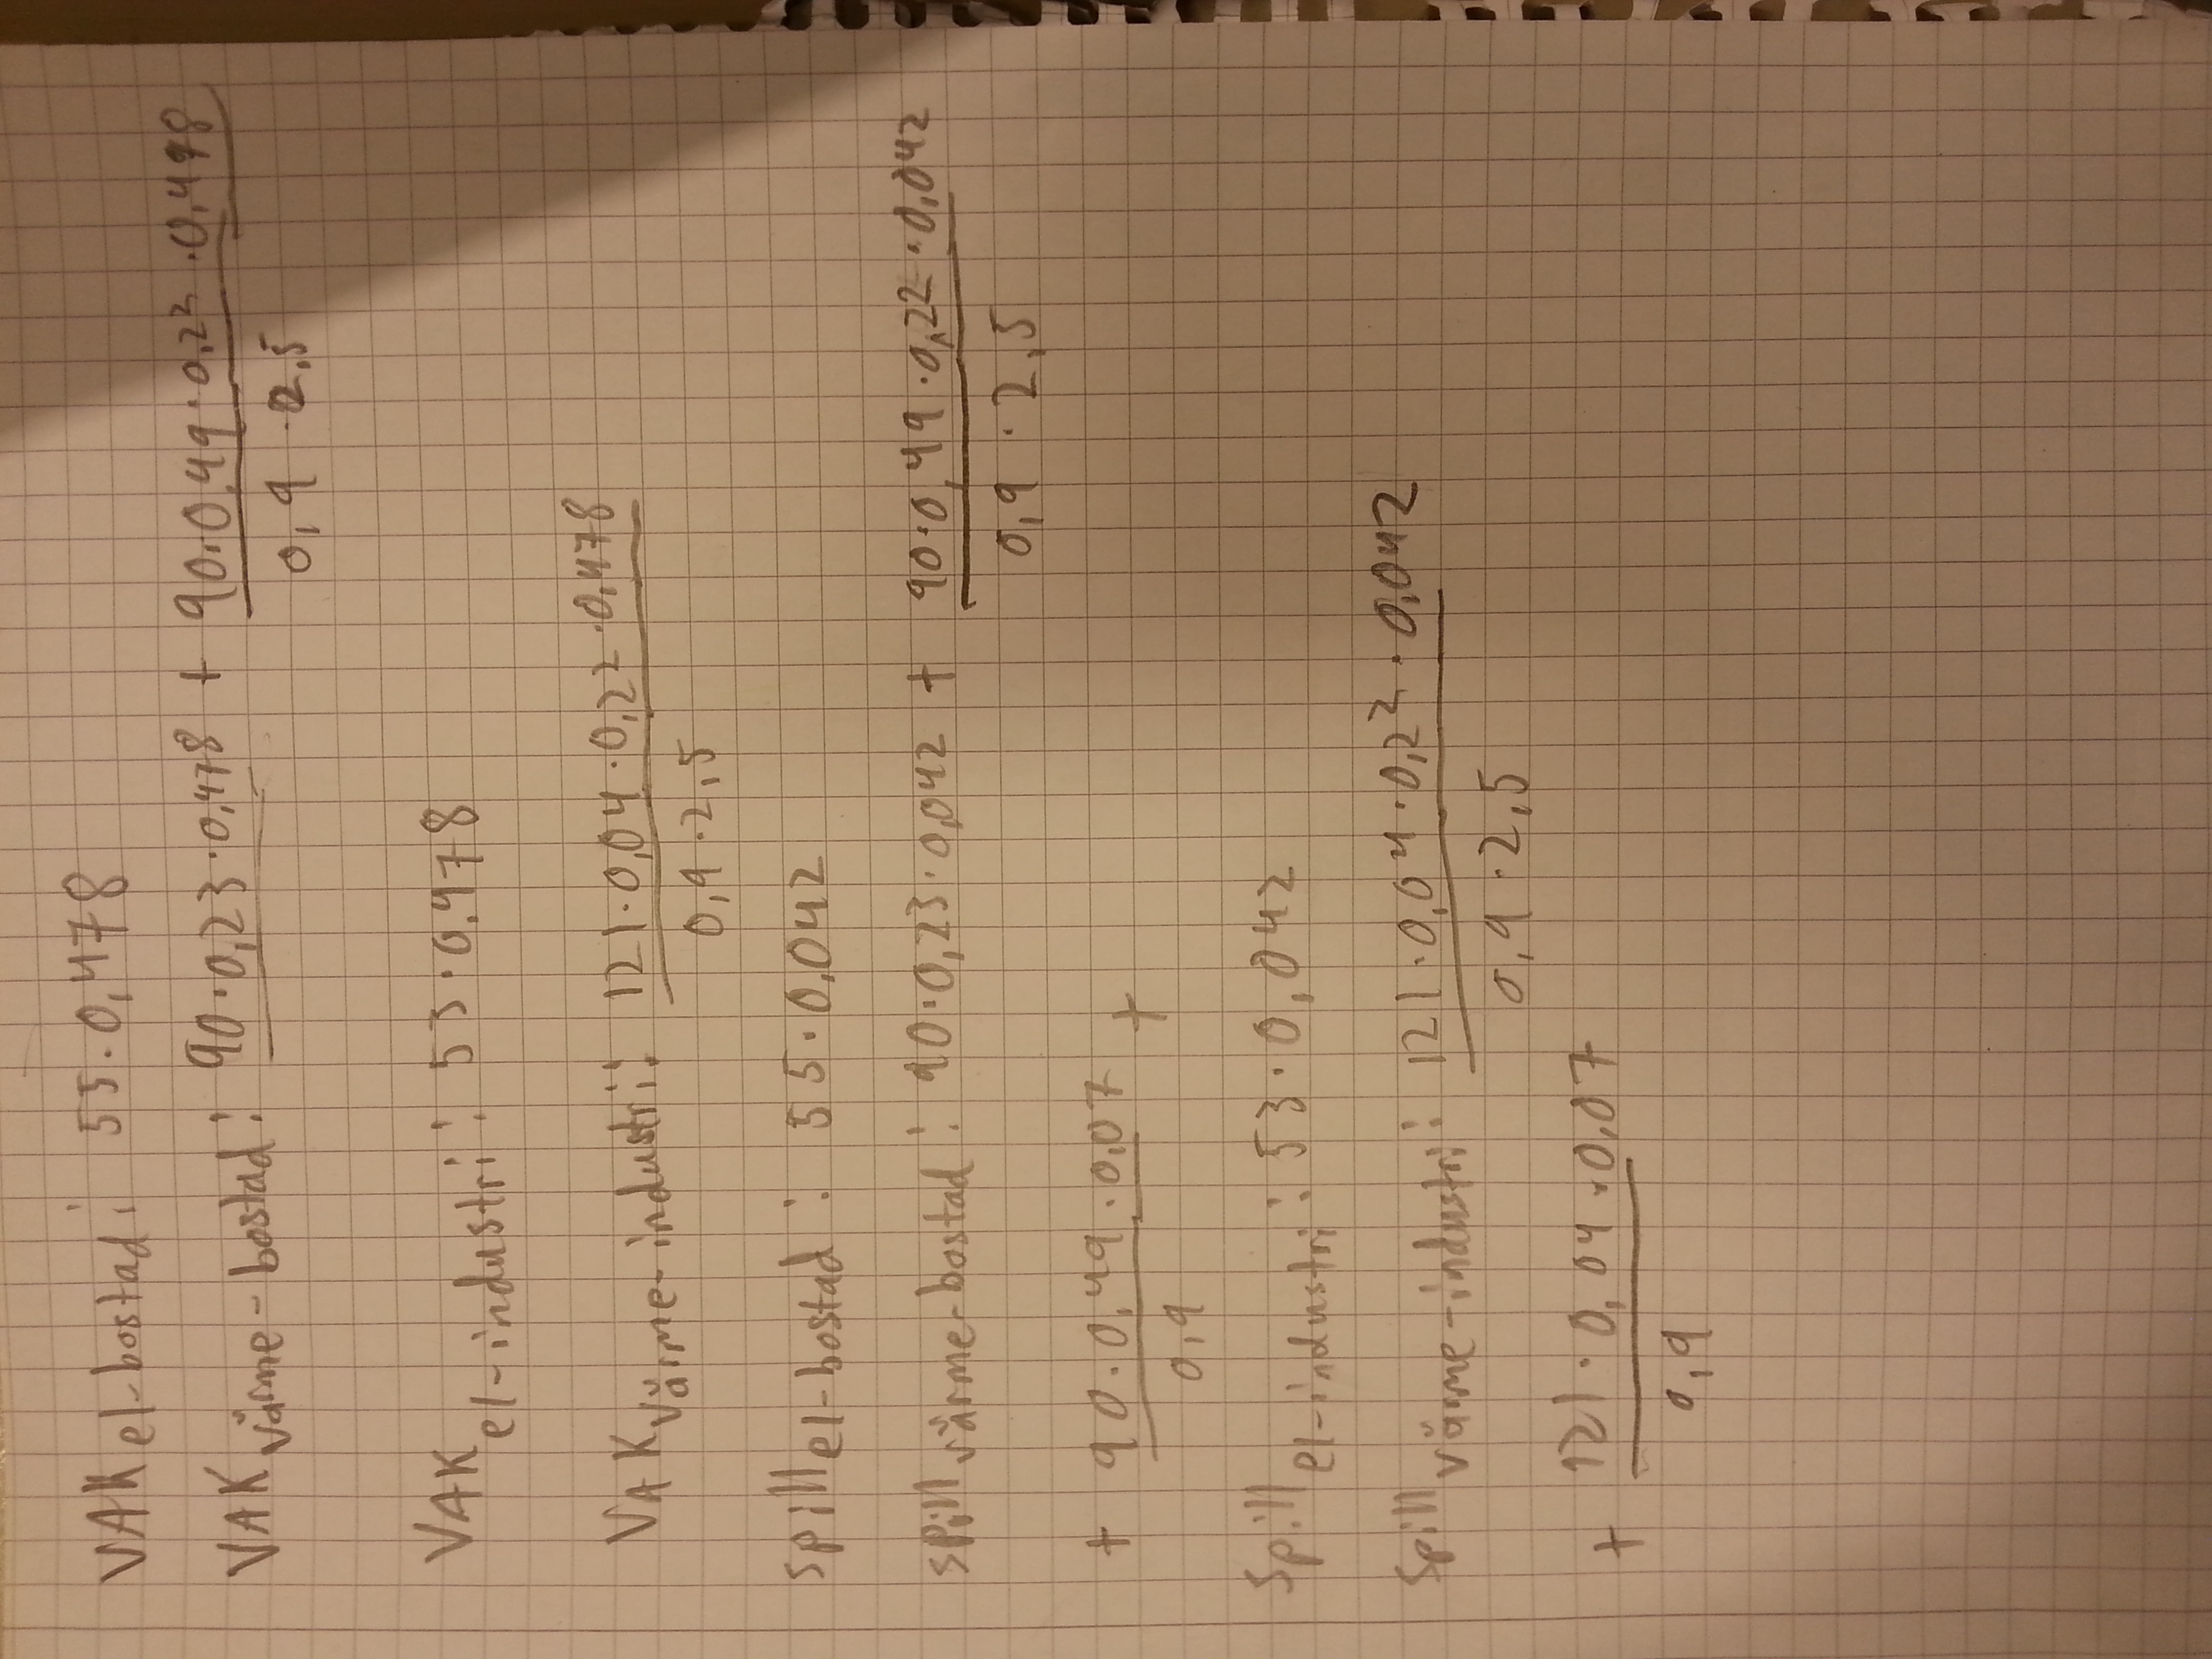 VAK el-bostad: 55·0,478
VAK värme-bostad: 90·0,23·0,478 + 90·0,49·0,22·0,478
0,9 ·2,5
VAK el-industri: 53·0,478
VAK värme-industri: 121·0,04·0,22·0,478
0,9·2,5
spill el-bostad: 55·0,042
spill värme-bostad: 90·0,23·0,042 + 90·0,49·0,22·0,042
0,9 · 2,5
+ 90·0,49·0,07 +
0,9
Spill el-industri: 53·0,042
Spill värme-industri: 121·0,04·0,22·0,042
0,9·2,5
+ 121·0,04·0,07
0,9